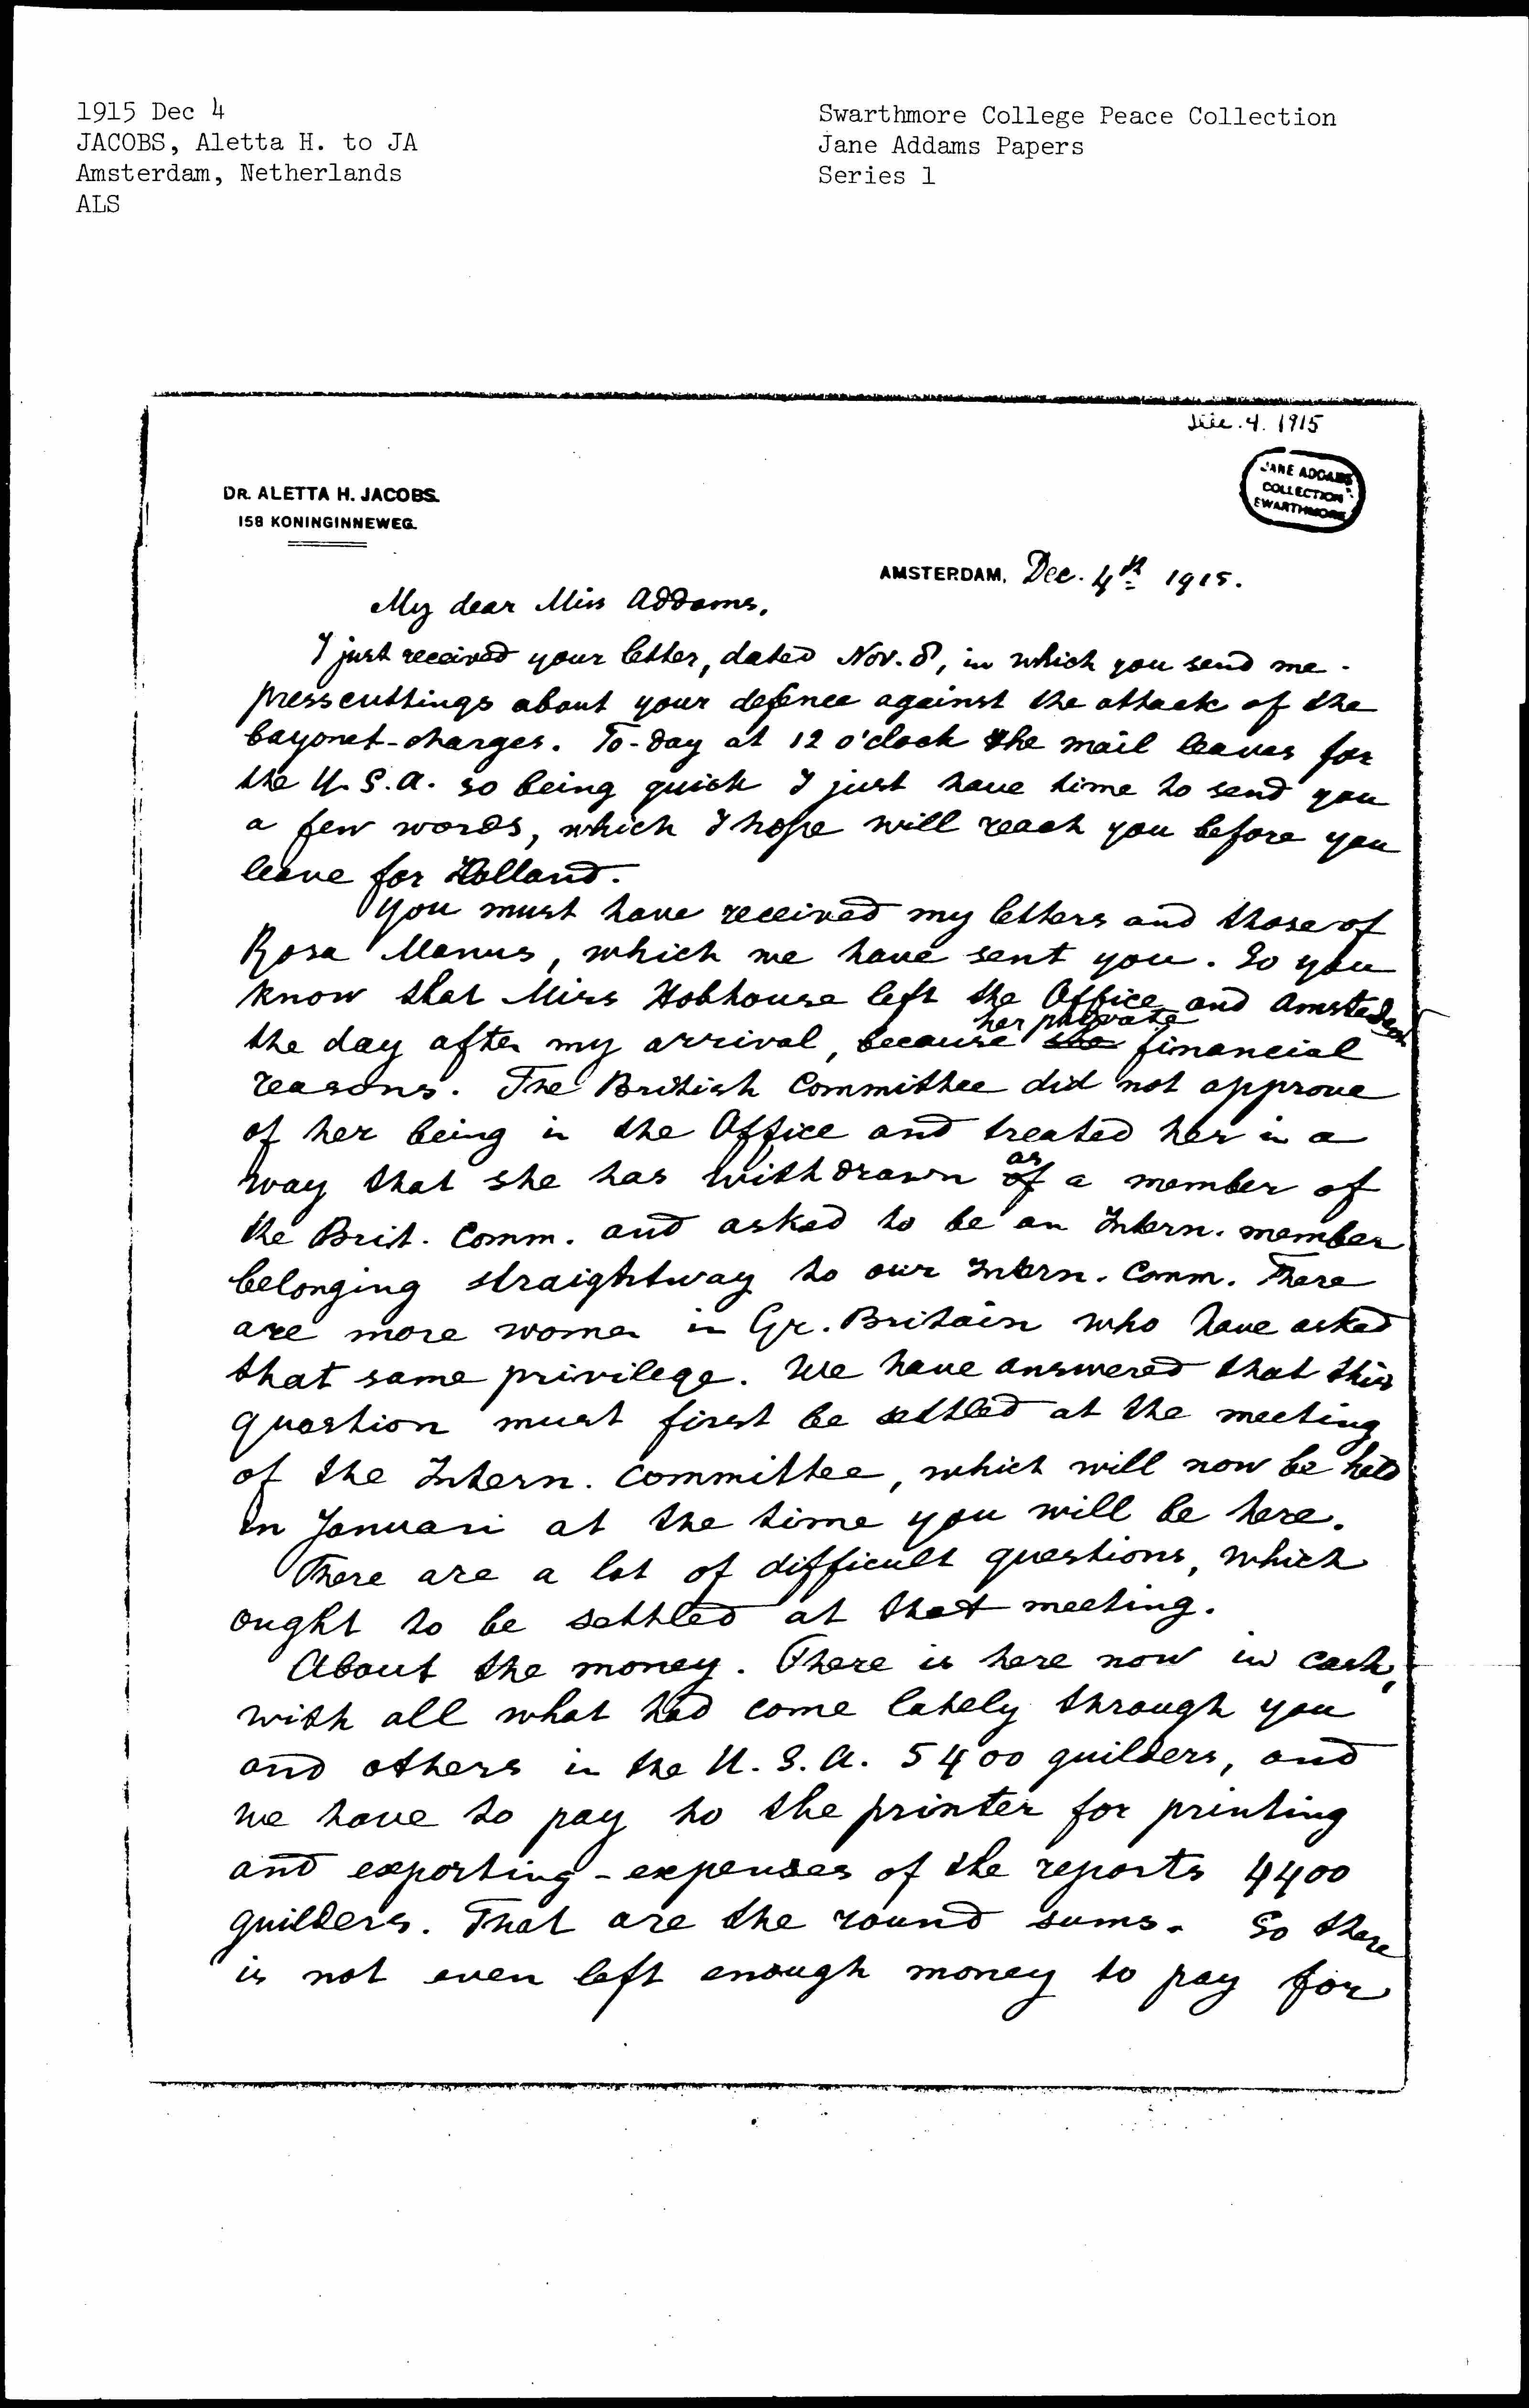 1915 Dec 4
JACOBS, Aletta H. to JA
Amsterdam, Netherlands
ALS
Swarthmore College Peace Collection
Jane Addams Papers
Series 1
Dec. 4. 1915
JANE ADDAMS
COLLECTION
SWARTHMORE
DR. ALETTA H. JACOBS.
158 KONINGINNEWEG.
AMSTERDAM, Dec. 4th 1915.
My dear Miss Addams,
I just received your letter, dated Nov. 8, in which you send me
presscuttings about your defence against the attack of the
bayonet-charges. To-day at 12 o'clock the mail leaves for
the U.S.A. so being quick I just have time to send you
a few words, which I hope will reach you before you
leave for Holland.
You must have received my letters and those of
Rosa Manus, which we have sent you. So you
know that Miss Hobhouse left the Office and Amsterdam
the day after my arrival, because her private financial
reasons. The British Committee did not approve
of her being in the Office and treated her in a
way that she has withdrawn as a member of
the Brit. Comm. and asked to be an Intern. member
belonging straightway to our Intern. Comm. There
are more women in Gr. Britain who have asked
that same privilege. We have answered that this
question must first be settled at the meeting
of the Intern. Committee, which will now be held
in Januari at the time you will be here.
There are a lot of difficult questions, which
ought to be settled at that meeting.
About the money. There is here now in cash,
with all what had come lately through you
and others in the U.S.A. 5400 guilders, and
we have to pay to the printer for printing
and exporting-expenses of the reports 4400
guilders. That are the round sums. So there
is not even left enough money to pay for